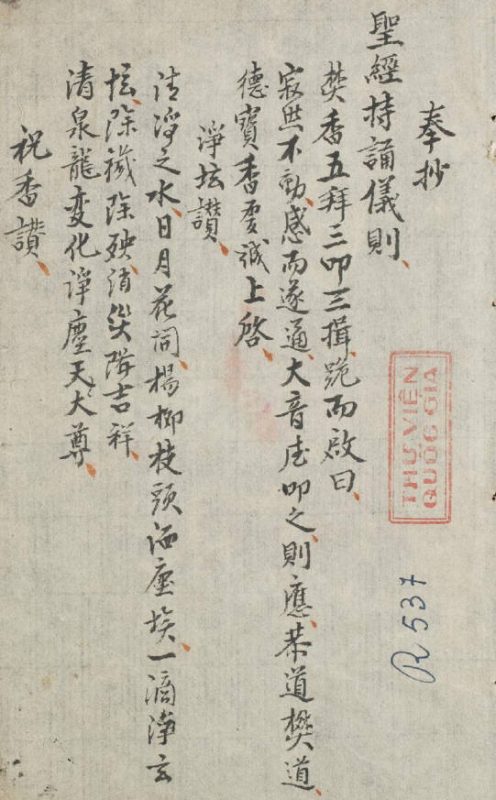 奉抄
聖經持誦儀則、
焚香五拜三叩三揖、跪而啟曰、
寂然不動、感而遂通、大音叩之、則應、恭道樊道、
德寶香虔誠上啓、
淨坛讃、
清淨之水、日月花洞、楊柳枝頭洒塵埃、一滴淨玄
坛、除穢除殃、消災降吉祥、
清泉龍变化淨塵天大尊、
祝香讃、
THƯ VIỆN
QUỐC GIA
R 537